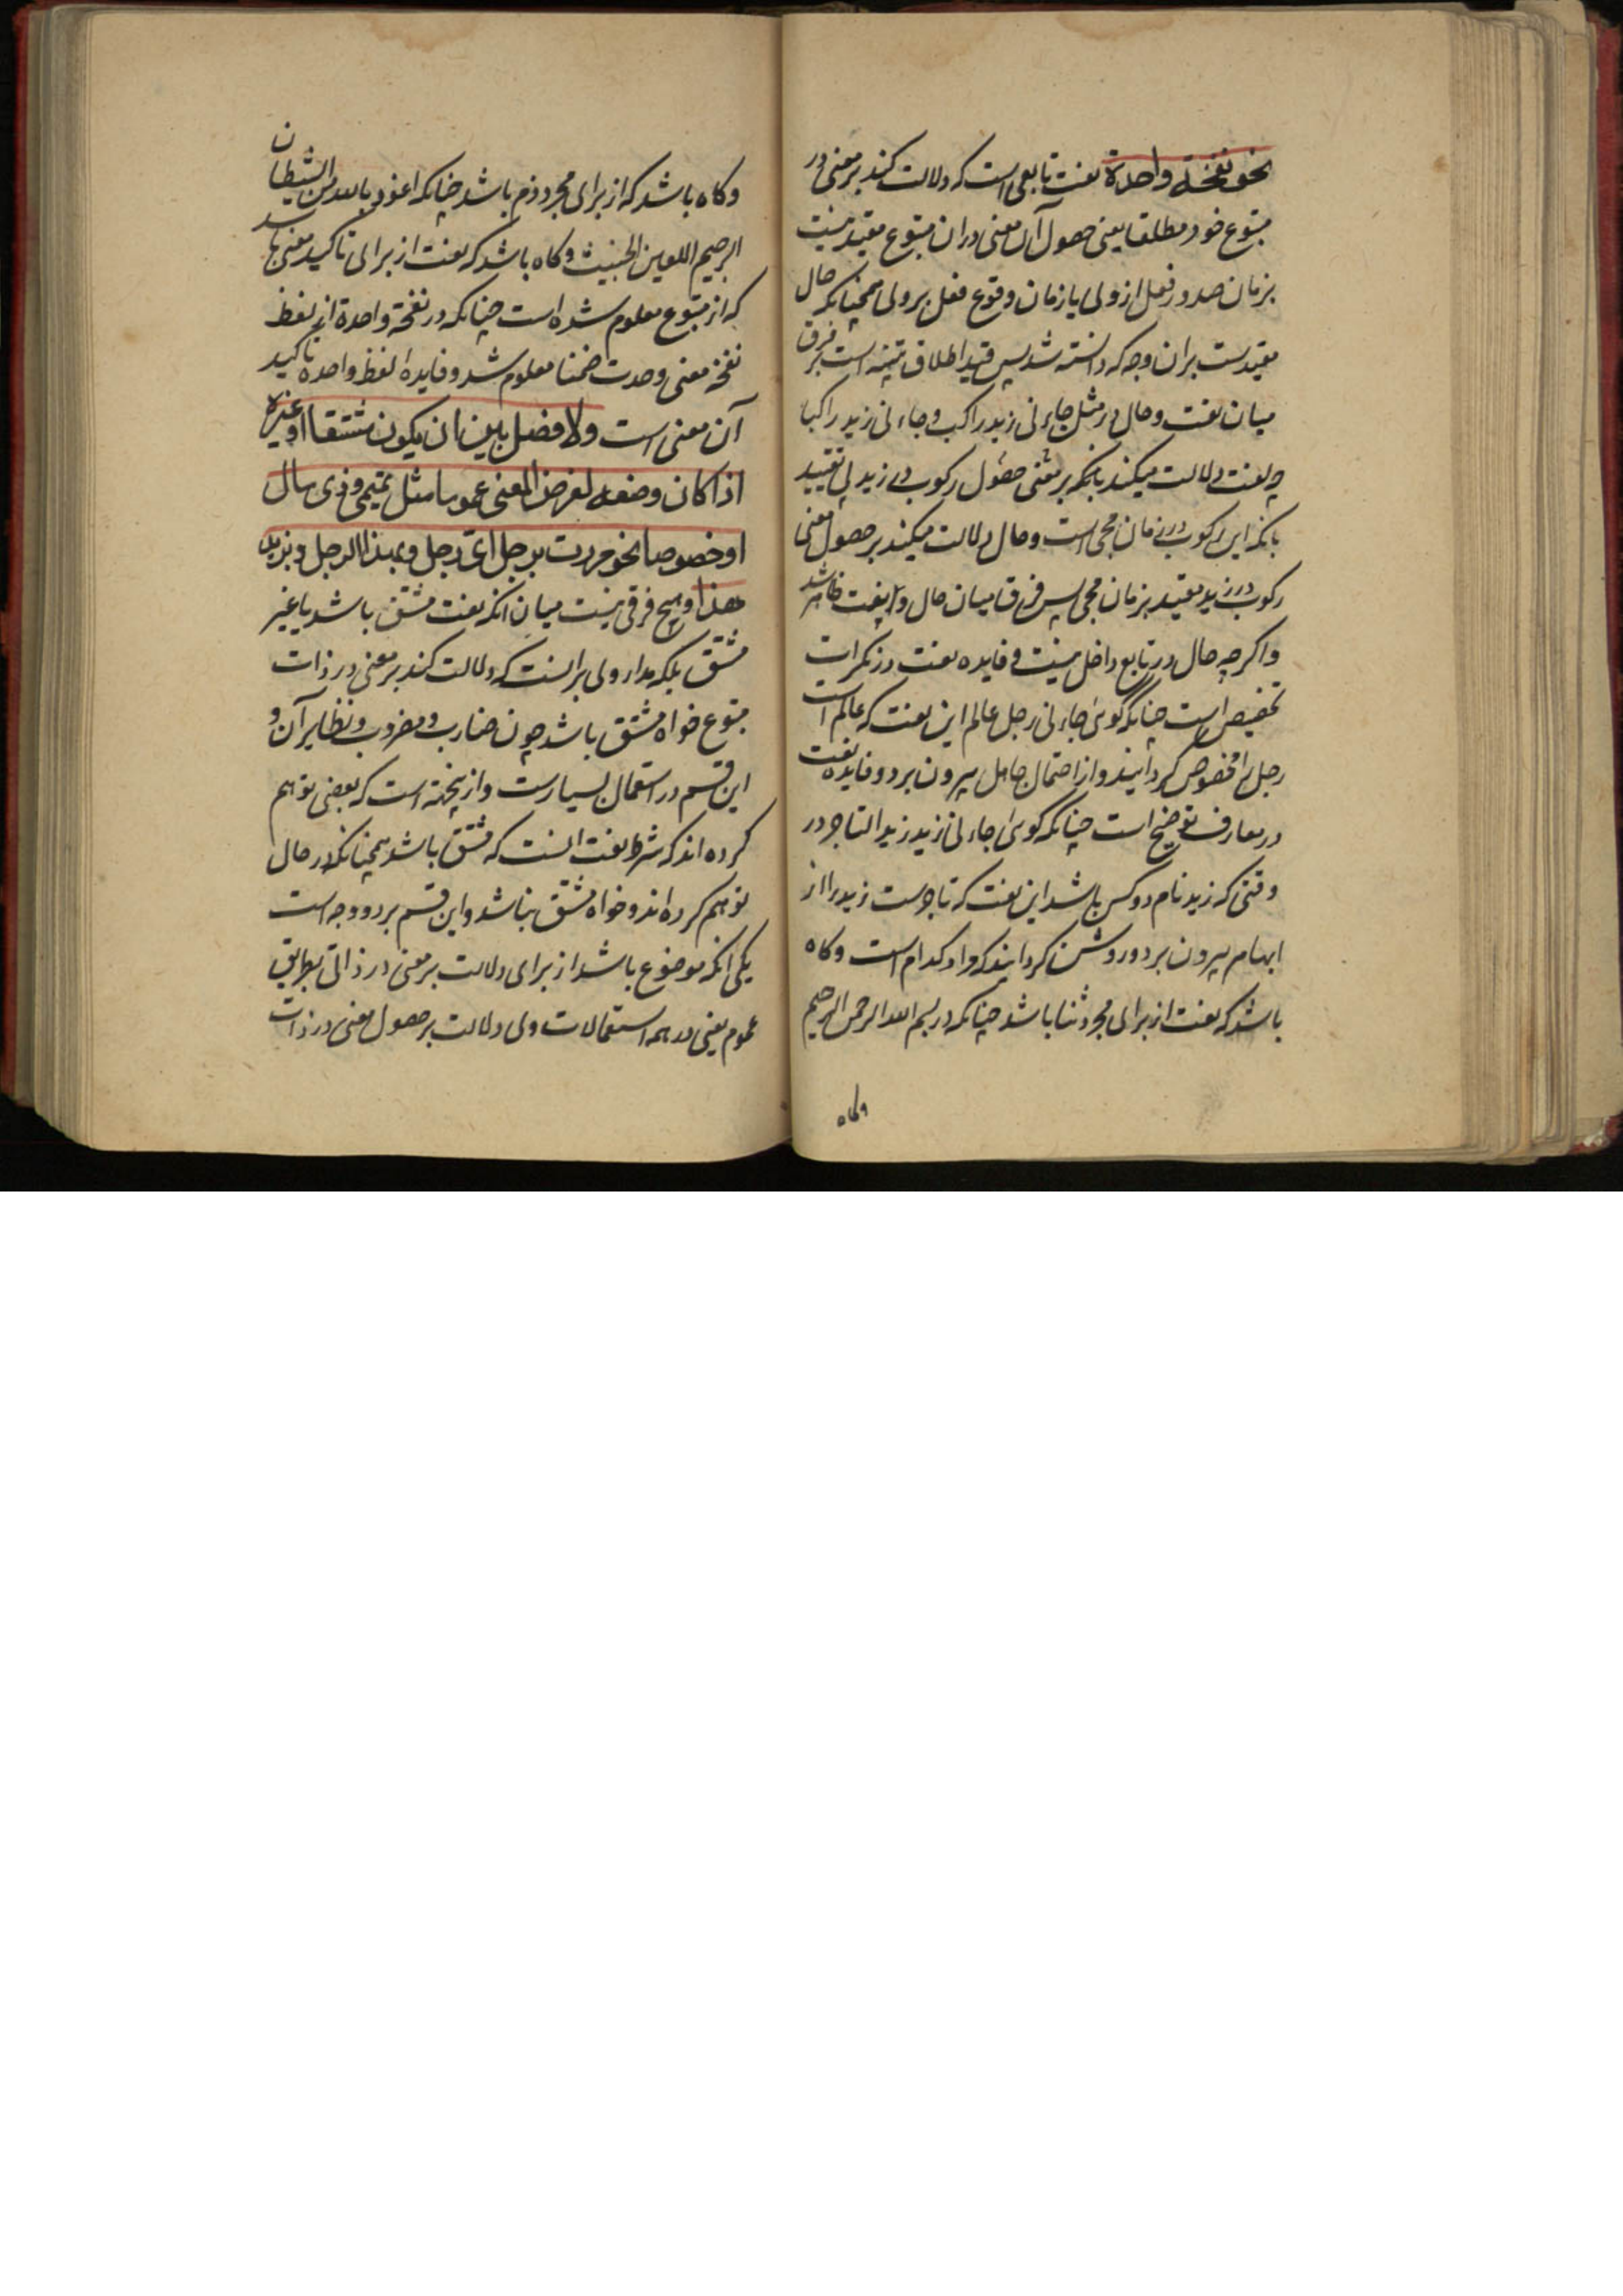 نحو نفخة واحدة نعت تابعی است که دلالت کند بر معنی در
متبوع خود مطلقا یعنی حصول آن معنی در ان متبوع مقید نیست
بزمان صدور فعل از وی یا زمان وقوع فعل بر وی همچنانکه حال
مقیدست بران وجه که دانسته شد پس قید اطلاق تنبیه است بر فرق
میان نعت و حال در مثل جاءنی زید راکب و جاءنی زید راکبا
چه نعت دلالت میکند بانکه بر معنی حصول رکوب در زید بی تقیید
بانکه این رکوب در زمان مجی است و حال دلالت میکند بر حصول معنی
رکوب در زید مقید بزمان مجی پس فرق میان حال و نعت ظاهر شد
واکرچه حال در تابع داخل نیست و فایده نعت در نکرات
تخصیص است چنانکه کوئی جاءنی رجل عالم این نعت که عالم است
رجل را مخصوص کردانید و از احتمال جاهل بیرون برد و فایده نعت
در معارف توضیح است چنانکه کوئی جاءنی زید زید التاجر در
وقتی که زید نام دو کس باشد این نعت که تاجرست زید را از
ابهام بیرون برد و روشن کردانید که مراد کدام است وکاه
باشد که نعت از برای مجرد ثنا باشد چنانکه در بسم الله الرحمن الرحیم
وکاه
وکاه باشد که از برای مجرد ذم باشد چنانکه اعوذ بالله من الشیطان
الرجیم اللعین الخبیث وکاه باشد که نعت از برای تاکید معنی باشد
که از متبوع معلوم شده است چنانکه در نفخة واحدة از لفظ
نفخة معنی وحدت ضمنا معلوم شد و فایده لفظ واحدة تاکید
آن معنی است ولا فصل بین ان یکون مشتقا او غیره
اذا کان وضعه لغرض المعنی عموما مثل تمیمی وذی مال
او خصوصا نحو مررت برجل ای رجل وبهذا الرجل وبزید
هذا وهیچ فرقی نیست میان انکه نعت مشتق باشد یا غیر
مشتق بلکه مدار وی بر انست که دلالت کند بر معنی در ذات
متبوع خواه مشتق باشد چون ضارب و مضروب و نظایر آن و
این قسم در استعمال بسیارست و ازینجهة است که بعضی توهم
کرده اند که شرط نعت انست که مشتق باشد همچنانکه در حال
توهم کرده اند و خواه مشتق نباشد و این قسم بر دو وجه است
یکی انکه موضوع باشد از برای دلالت بر معنی در ذاتی بطریق
عموم یعنی در همه استعمالات وی دلالت بر حصول معنی در ذات